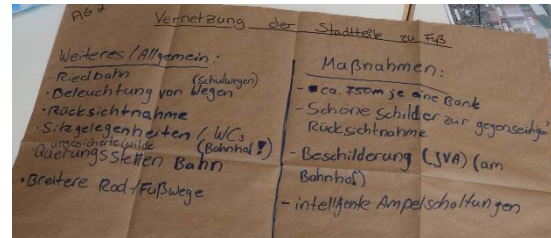 AG 2
Vernetzung der Stadtteile zu Fuß
Weiteres / Allgemein:
- Riedbahn
(Schulwegen)
• Beleuchtung von Wegen
• Rücksichtnahme
• Sitzgelegenheiten / WCs
(Bahnhof!)
ungesicherte/wilde
Querungsstellen Bahn
• Breitere Rad-/Fußwege
Maßnahmen:
- ca. 750m je eine Bank
- Schöne Schilder zur gegenseitige
Rücksichtnahme
- Beschilderung (JVA) (am
Bahnhof)
- intelligente Ampelschaltungen